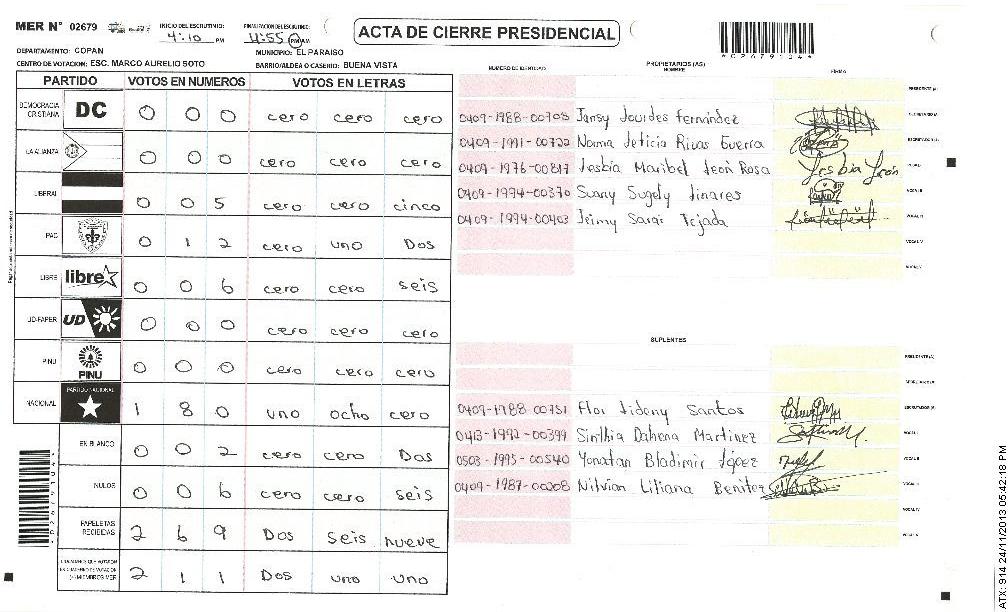 MER N° 02679
INICIO DEL ESCRUTINIO:
4:10 PM
FINALIZACION DEL ESCRUTINIO:
4:55 PM AM
ACTA DE CIERRE PRESIDENCIAL
*02679104*
DEPARTAMENTO: COPAN
MUNICIPIO: EL PARAISO
CENTRO DE VOTACION: ESC. MARCO AURELIO SOTO
BARRIO/ALDEA O CASERIO: BUENA VISTA
PARTIDO VOTOS EN NUMEROS VOTOS EN LETRAS
DEMOCRACIA CRISTIANA DC 0 0 0 cero cero cero
LA ALIANZA 0 0 0 cero cero cero
LIBERAL 0 0 5 cero cero cinco
PAC 0 1 2 cero uno Dos
LIBRE libre 0 0 6 cero cero seis
UD-FAPER UD 0 0 0 cero cero cero
PINU PINU 0 0 0 cero cero cero
NACIONAL PARTIDO NACIONAL 1 8 0 uno ocho cero
EN BLANCO 0 0 2 cero cero Dos
NULOS 0 0 6 cero cero seis
PAPELETAS RECIBIDAS 2 6 9 Dos seis nueve
2 1 1 Dos uno uno
NUMERO DE IDENTIDAD PROPIETARIOS (AS) NOMBRE FIRMA
PRESIDENTE (A)
0409-1988-00708 Jansy Lourdes Fernández SECRETARIO/A
0409-1991-00722 Norma Leticia Rivas Guerra ESCRUTADOR (A)
0409-1976-00817 Lesbia Maribel León Rosa Lesbia León VOCAL I
0409-1994-00370 Sunny Sugely Linares VOCAL II
0409-1994-00403 Leimy Sarai Tejada VOCAL III
VOCAL IV
VOCAL V
SUPLENTES
PRESIDENTE(A)
SECRETARIO/A
0409-1988-00751 Flor Lideny Santos ESCRUTADOR (A)
0413-1992-00399 Sinthia Dahena Martinez VOCAL I
0503-1995-00540 Yonatan Bladimir López VOCAL II
0409-1987-00208 Nilvian Liliana Benitez VOCAL III
VOCAL IV
VOCAL V
*02679104*
ATX: 914 24/11/2013 05:42:18 PM